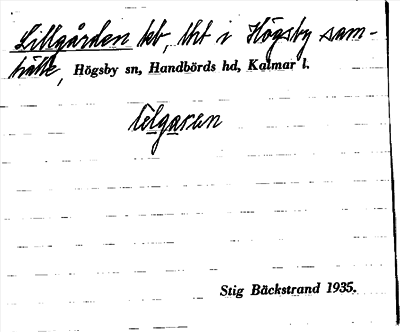 Lillgården kb, tht i Högsby sam-
hälle, Högsby sn, Handbörds hd, Kalmar l.
Stig Bäckstrand 1935.